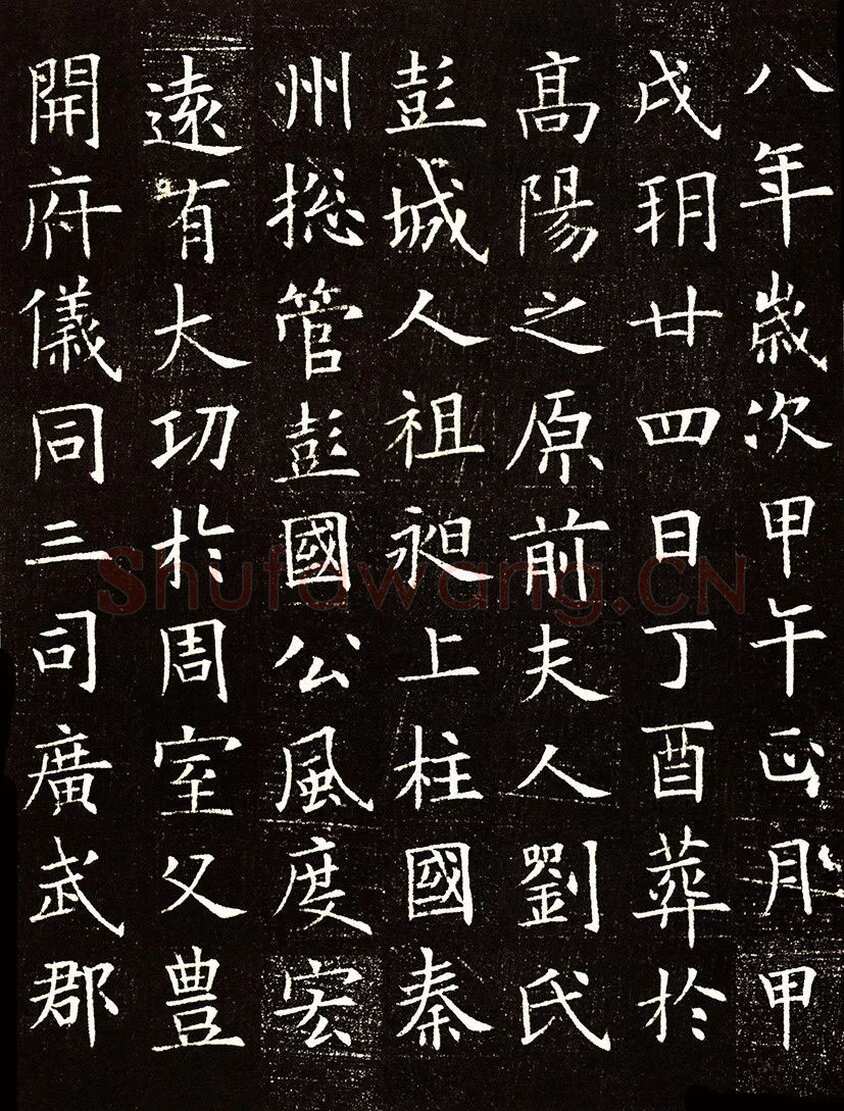 八年歳次甲午正月甲
戌朔廿四日丁酉葬於
髙陽之原前夫人劉氏
彭城人祖昶上柱國秦
州捴管彭國公風度宏
遠有大功於周室父豊
開府儀同三司廣武郡
Shufawang.CN